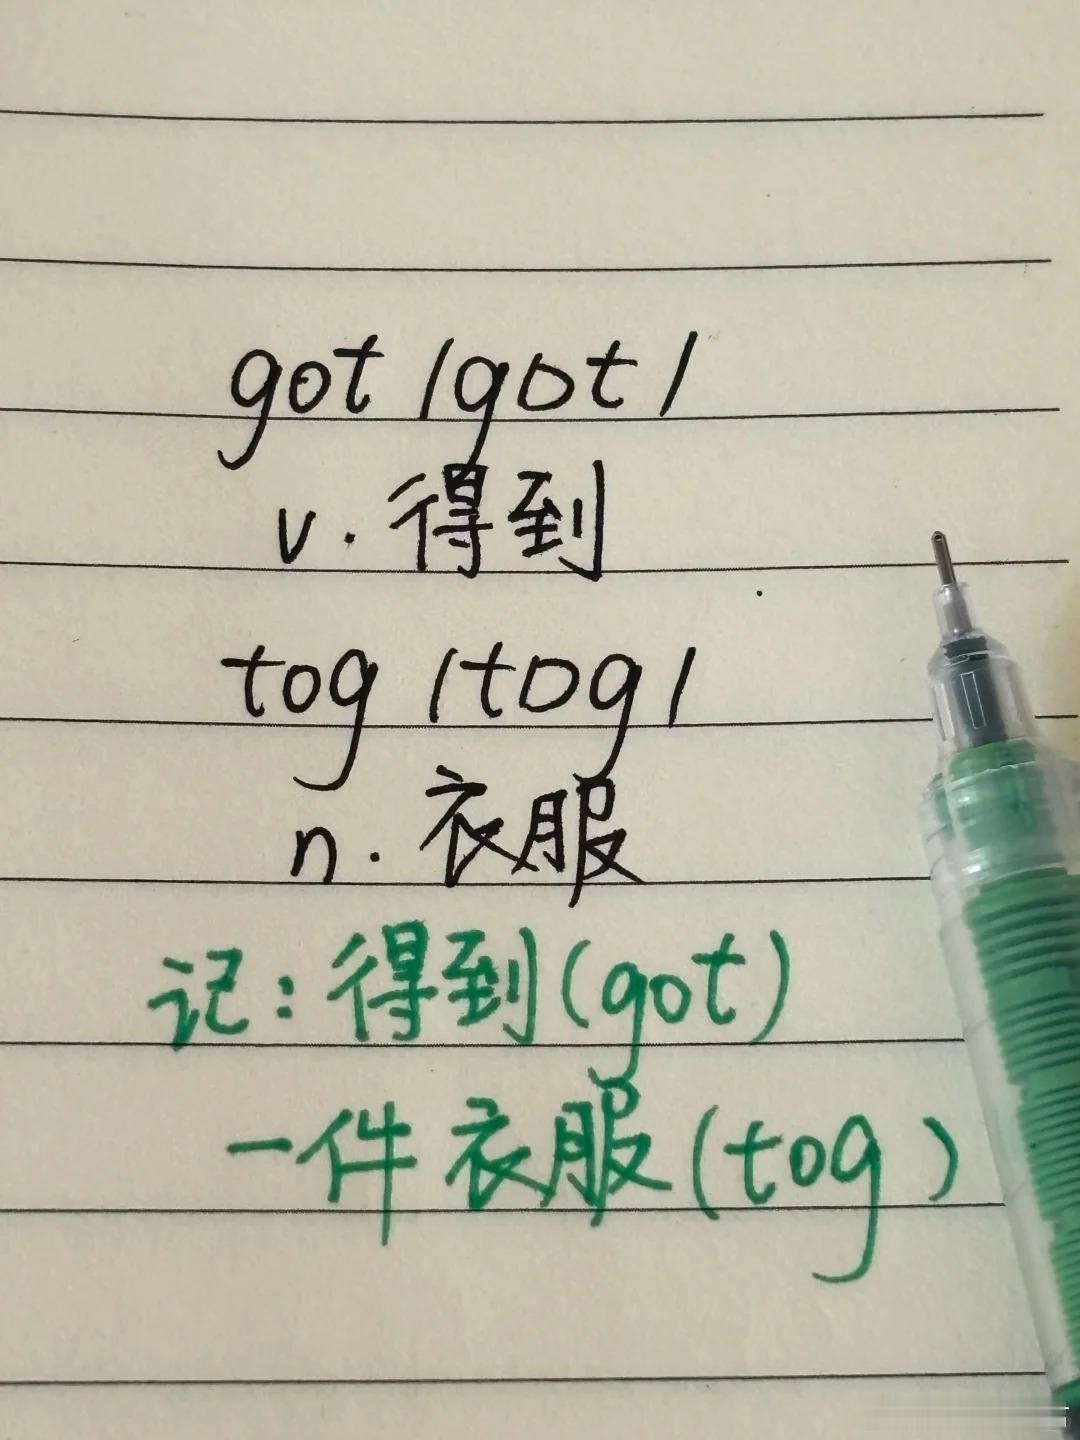 got /gɒt/
v. 得到
tog /tɒg/
n. 衣服
记: 得到(got)
一件衣服(tog)